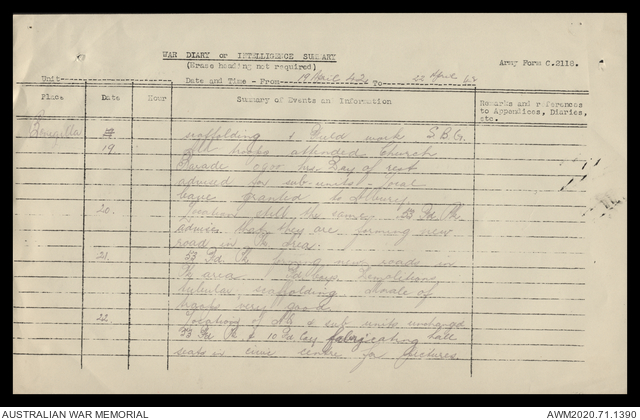 WAR DIARY or INTELLIGENCE SUMMARY
(Erase heading not required)
Army Form C.2118.
Unit
Date and Time - From 19 April 42 To 22 April 42
Place Date Hour Summary of Events and Information Remarks and references to Appendices, Diaries, etc.
scaffolding & Build work S.B.G.
19 All troops attended Church
Parade 0900 hrs Day of rest
advised for sub-units. local
leave granted to Albury.
20. locations still the same. 23 Fd Pk
advises that they are forming new
road in Pk area.
21. 23 Fd. Pk forming new roads in
Pk area. Fd Coys Demolitions,
tubular scaffolding. Morale of
troops very good.
22 locations of & sub units unchanged
23 Fd Pk & 10 Fd Coy fabricating hall
seats in civic centre for pictures
AUSTRALIAN WAR MEMORIAL
AWM2020.71.1390